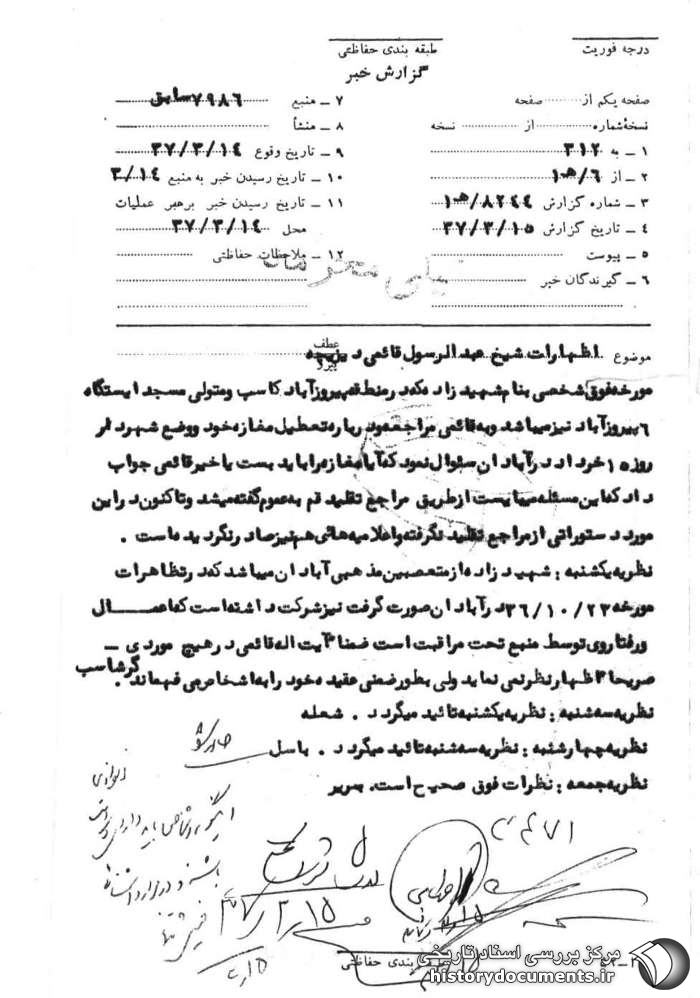 درجه فوریت
طبقه بندی حفاظتی
گزارش خبر
صفحه یکم از ........ صفحه
نسخهٔ شماره ........ از ........ نسخه
۱ ــ به ۳۱۲
۲ ــ از ۶/ه‍۱۰
۳ ــ شماره گزارش ۸۲۴۴/ه‍۱۰
۴ ــ تاریخ گزارش ۳۷/۳/۱۵
۵ ــ پیوست
۶ ــ گیرندگان خبر
۷ ــ منبع ۷۹۸۶ سابق
۸ ــ منشأ
۹ ــ تاریخ وقوع ۳۷/۳/۱۴
۱۰ ــ تاریخ رسیدن خبر به منبع ۳/۱۴
۱۱ ــ تاریخ رسیدن خبر برهبر عملیات
محل ۳۷/۳/۱۴
۱۲ ــ ملاحظات حفاظتی
موضوع اظهارات شیخ عبدالرسول قائمی
عطف
پیرو
مورخه فوق شخصی بنام شهید زاده که در منطقه پیروزآباد کاسب و متولی مسجد ایستگاه
۶ پیروزآباد نیز میباشد به قائمی مراجعه و درباره تعطیل مغازه خود و وضع شهر در
روز ۱۵ خرداد در آبادان سئوال نمود که آیا مغازه را باید بست یا خیر قائمی جواب
داد که این مسئله میبایست از طریق مراجع تقلید قم به عموم گفته میشد و تاکنون در این
مورد دستوراتی از مراجع تقلید نگرفته و اعلامیه هائی هم نیز صادر نگردیده است .
نظریه یکشنبه : شهید زاده از متعصبین مذهبی آبادان میباشد که در تظاهرات
مورخه ۳۶/۱۰/۲۳ در آبادان صورت گرفت نیز شرکت داشته است که اعمــال
و رفتار وی توسط منبع تحت مراقبت است ضمنا آیت اله قائمی در هیچ موردی ــ
صریحا اظهار نظر نمی نماید ولی بطور ضمنی عقیده خود را به اشخاص می فهماند . گرشاسب
نظریه سه شنبه : نظریه یکشنبه تائید میگردد . شعله
نظریه چهارشنبه : نظریه سه شنبه تائید میگردد . باسل
نظریه جمعه : نظرات فوق صحیح است. سریر
۳۷/۳/۱۵
طبقه بندی حفاظتی
مرکز بررسی اسناد تاریخی
historydocuments.ir